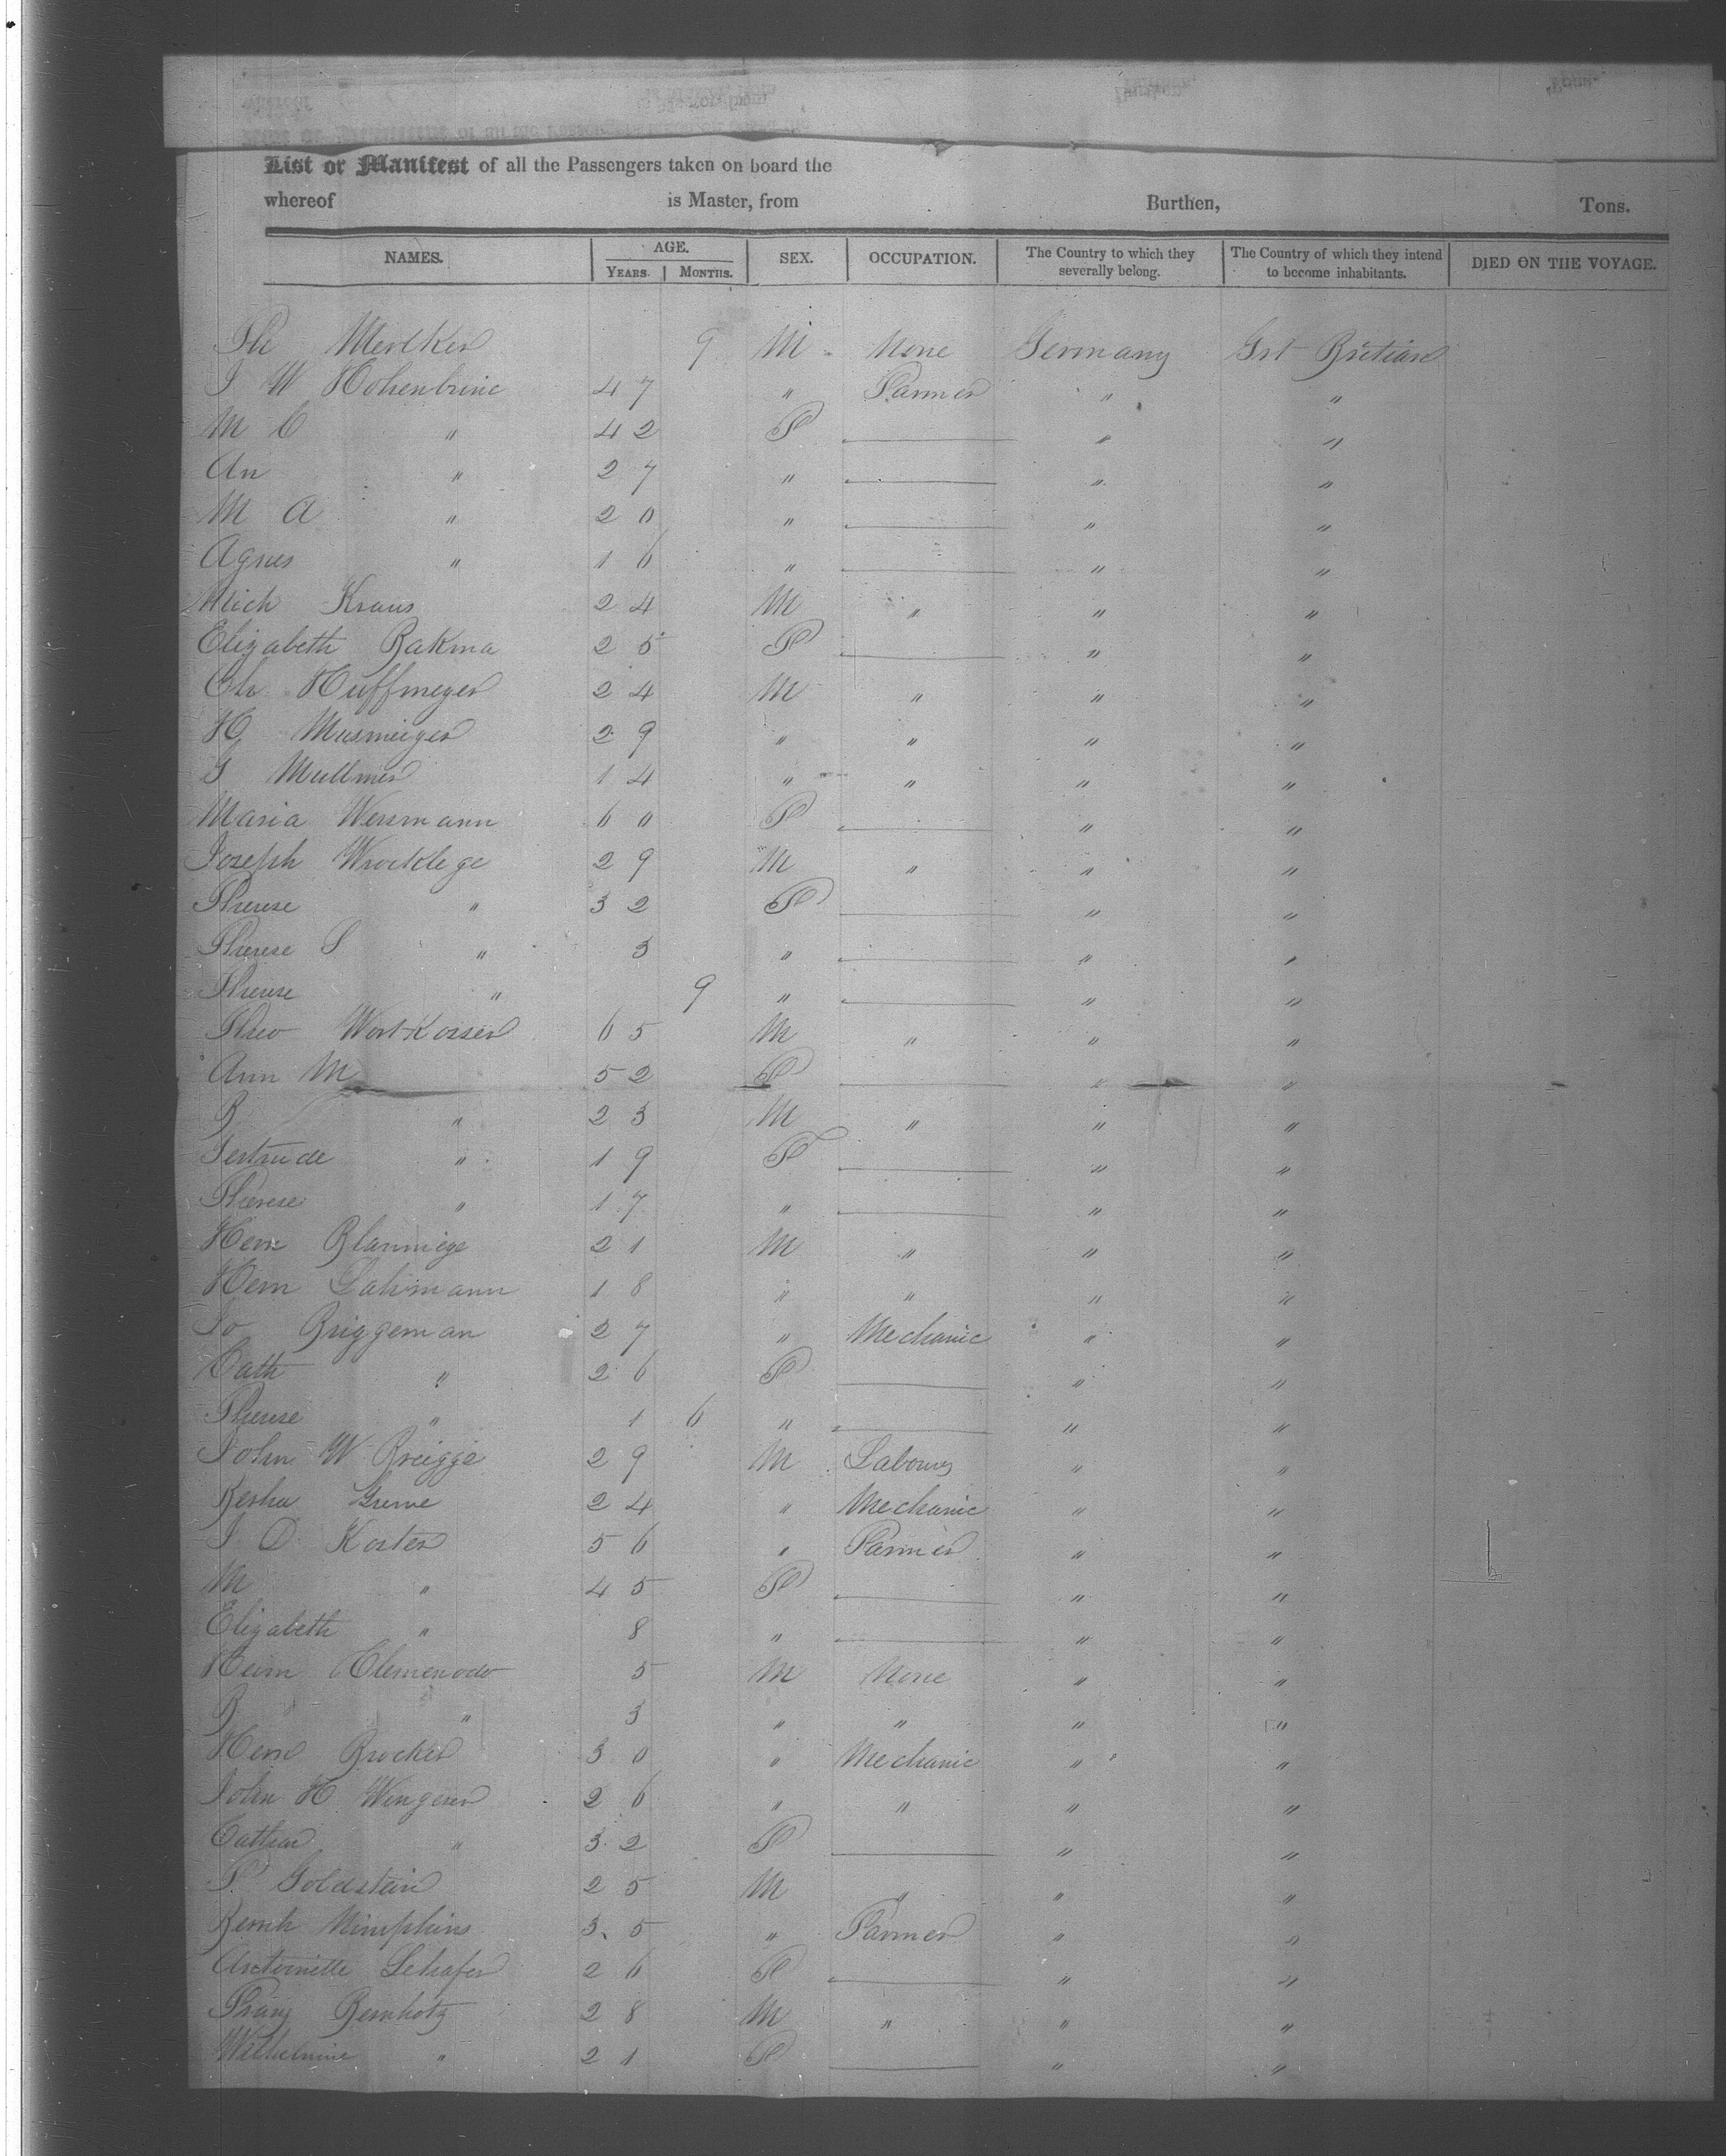 List or Manifest of all the Passengers taken on board the
whereof is Master, from Burthen, Tons.
NAMES. AGE. YEARS. MONTHS. SEX. OCCUPATION. The Country to which they severally belong. The Country of which they intend to become inhabitants. DIED ON THE VOYAGE.
9 M None Germany Grt Britian
J W 47 " Farmer " "
M C " 42 F " "
An " 27 " " "
M A " 20 " " "
Agnes " 16 " " "
Mich Kraus 24 M " " "
Elizabeth Bakma 25 F " "
Ch Huffmeyer 24 M " " "
H 29 " " " "
G 14 " " " "
Maria Wersmann 60 F " "
Joseph 29 M " " "
Therese " 32 F " "
Therese S " 3 " " "
Therese " 9 " " "
Theo 65 M " " "
Ann M 52 F " "
B " 23 M " " "
Gertrude " 19 F " "
Therese " 17 " " "
Herm 21 M " " "
Herm Lahmann 18 " " " "
Jo Briggeman 27 " Mechanic " "
Cath " 26 F " "
Therese " 1 6 " " "
John W Breigge 29 M Labourer " "
24 " Mechanic " "
J D Koster 56 " Farmer " "
M " 45 F " "
Elizabeth " 8 " " "
5 M None " "
B " 3 " " " "
Herm Brocker 30 " Mechanic " "
John H 26 " " " "
" 32 F " "
Goldstein 25 M " " "
Bernh 35 " Farmer " "
Antoinette Schafer 26 F " "
Franz Bernhotz 28 M " " "
Wilhelmine " 21 F " "